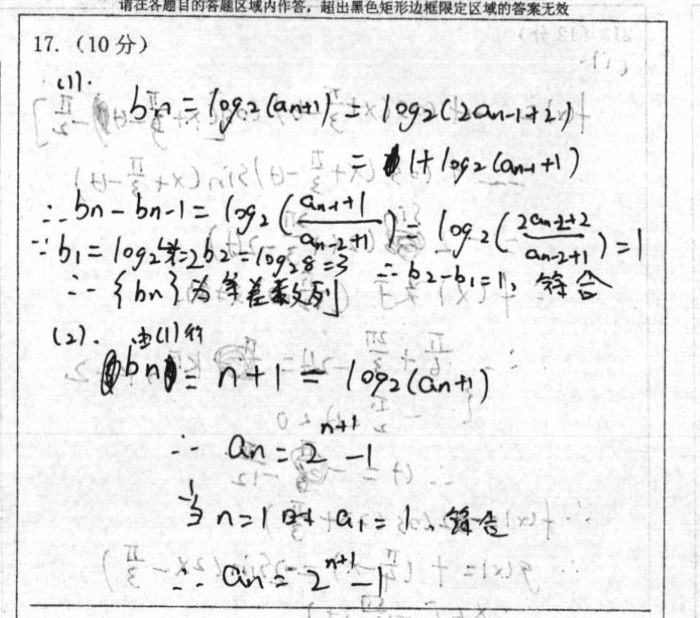 请在各题目的答题区域内作答，超出黑色矩形边框限定区域的答案无效
17.（10分）
(1). bn = log2(an+1) = log2(2an-1+2)
= 1+log2(an-1+1)
∴ bn-bn-1 = log2((an-1+1)/(an-2+1)) = log2((2an-2+2)/(an-2+1)) = 1
∵ b1 = log2 4 = 2 b2 = log2 8 = 3 ∴ b2-b1=1, 符合
∴ {bn}为等差数列
(2). 由(1)得
bn = n+1 = log2(an+1)
∴ an = 2^(n+1) -1
当n=1时 a1=1, 符合
∴ an = 2^(n+1) -1